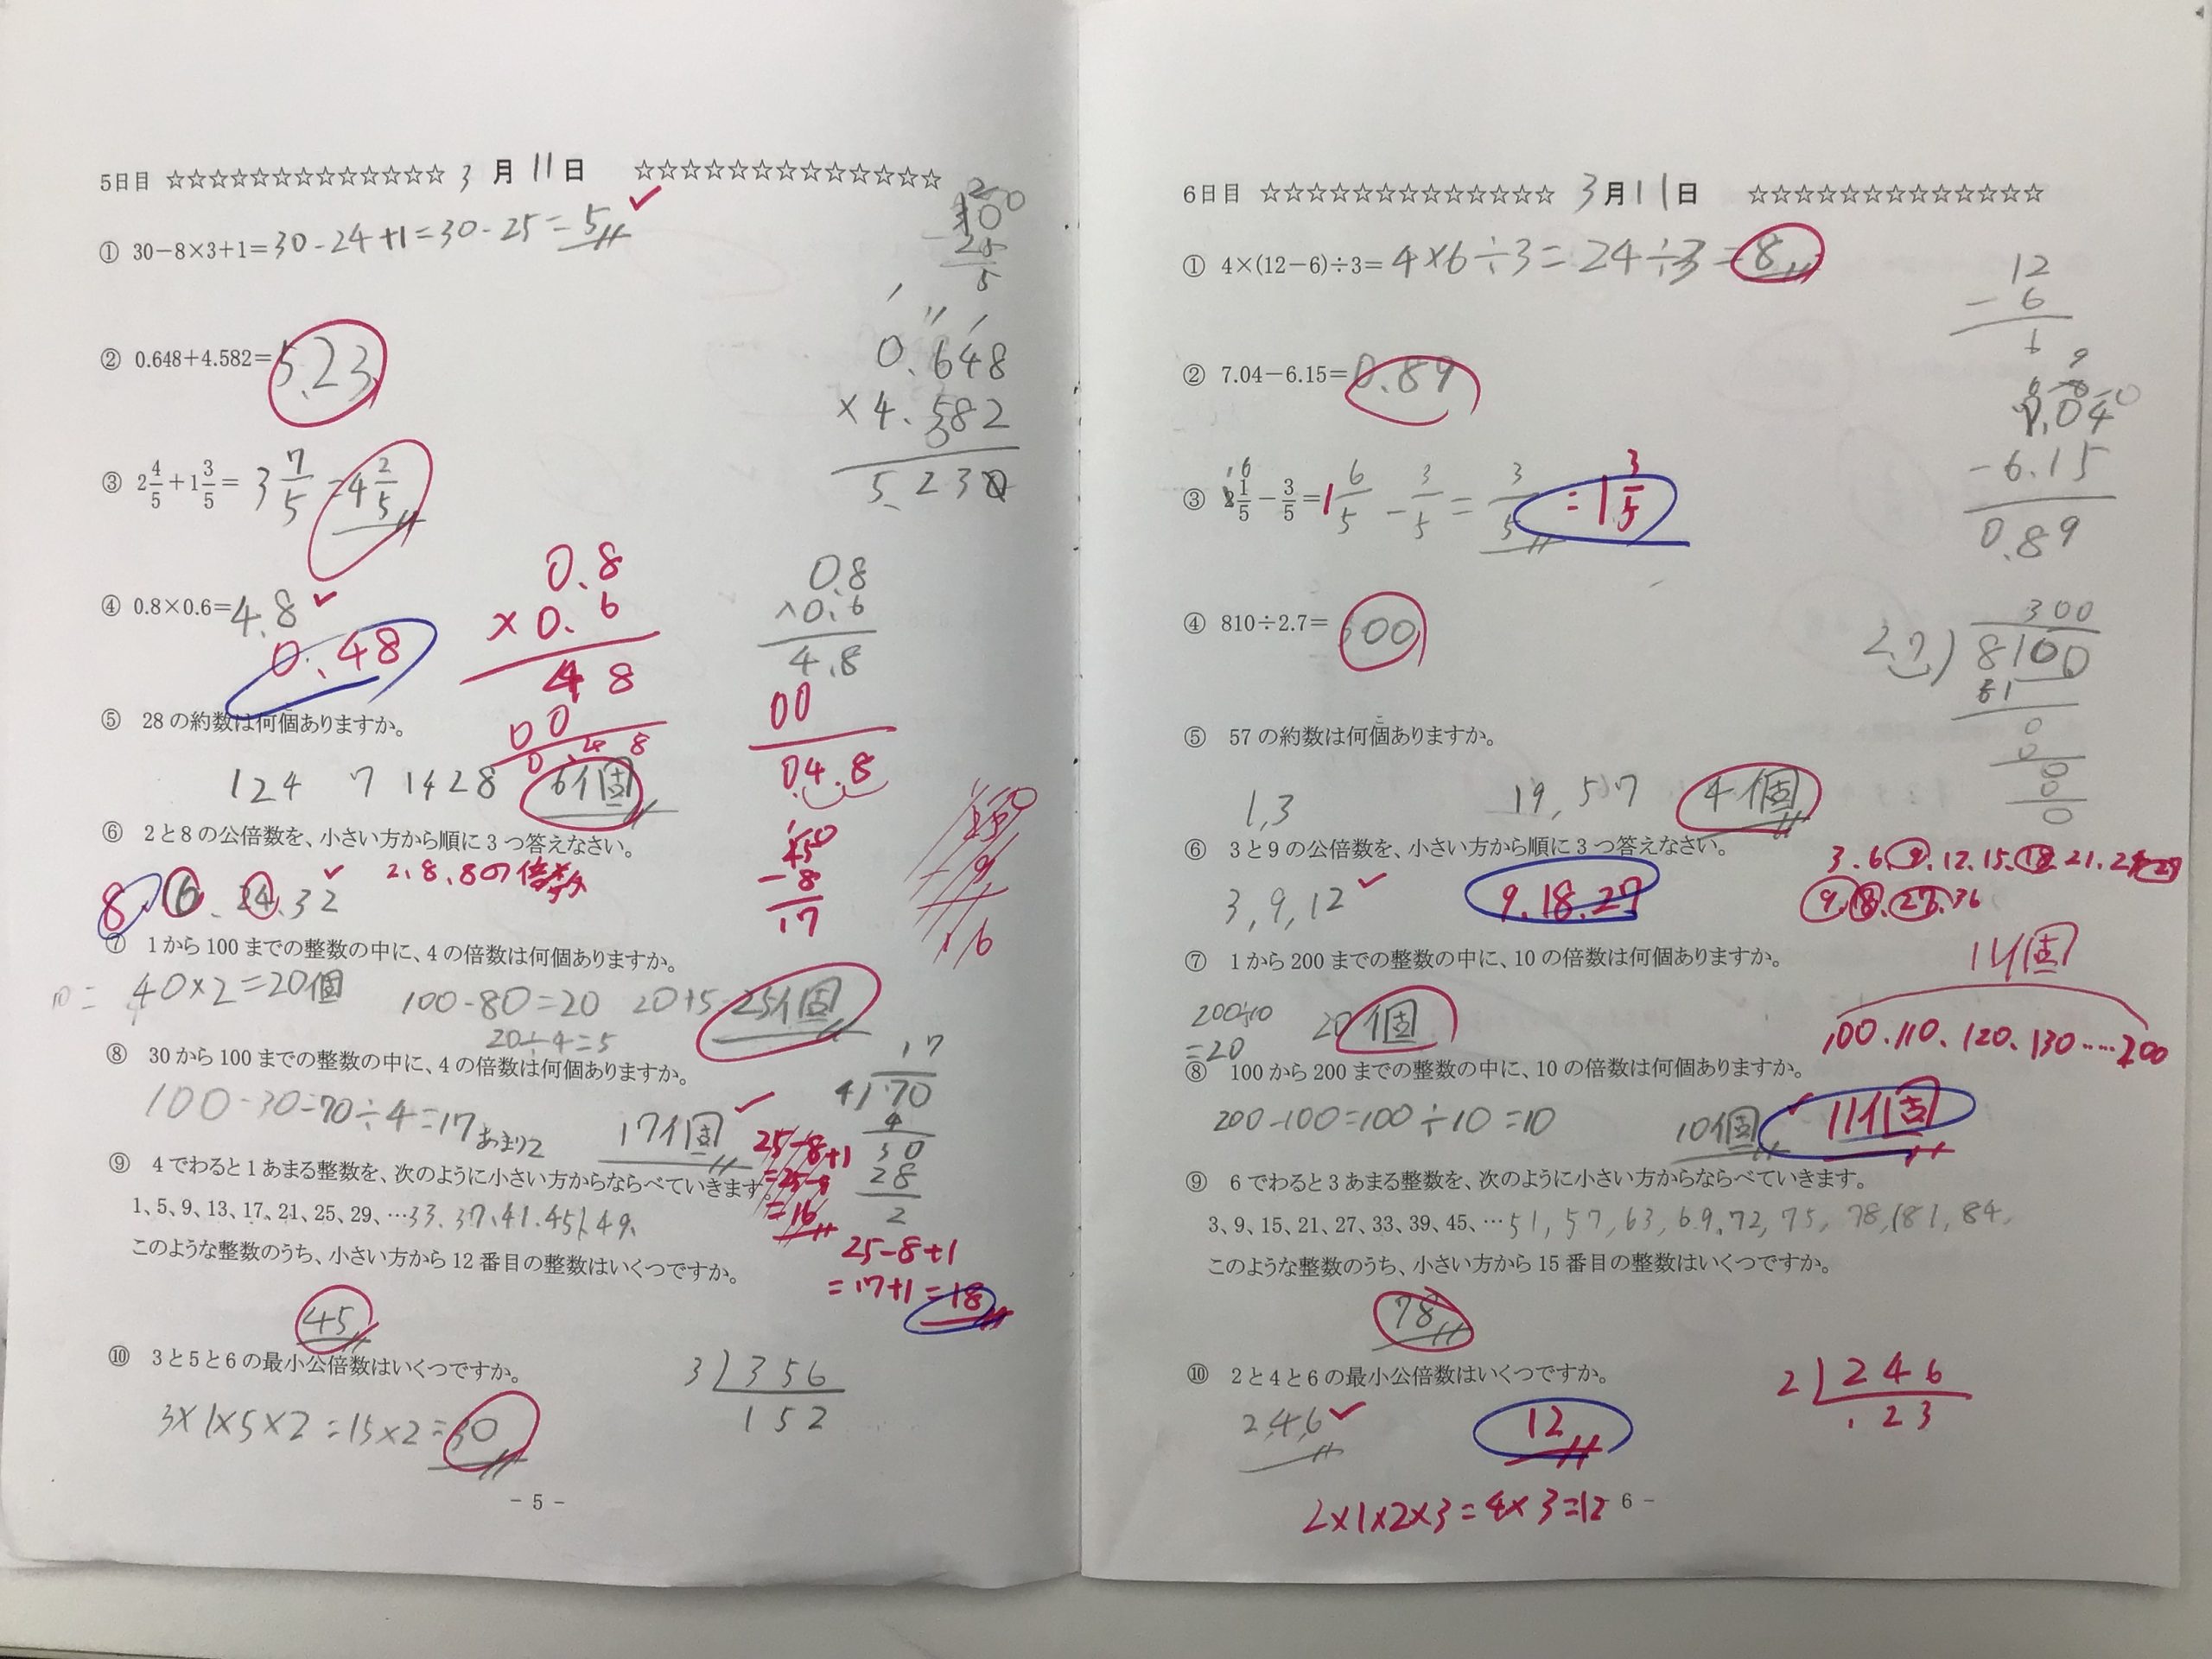 5日目 ☆☆☆☆☆☆☆☆☆☆☆☆☆ 3 月 11 日 ☆☆☆☆☆☆☆☆☆☆☆☆☆
① 30−8×3+1=30-24+1=30-25=5
② 0.648+4.582=5.23
0.648
×4.582
5.230
③ 2 4/5+1 3/5= 3 7/5 =4 2/5
④ 0.8×0.6=4.8
0.48
0.8
×0.6
48
00
0.48
0.8
×0.6
4.8
00
04.8
⑤ 28の約数は何個ありますか。
1 2 4 7 14 28 6個
⑥ 2と8の公倍数を、小さい方から順に3つ答えなさい。
2,8,8の倍数
8, 16, 24, 32
-8
17
⑦ 1から100までの整数の中に、4の倍数は何個ありますか。
40×2=20個 100-80=20 20+5=25個
20÷4=5
⑧ 30から100までの整数の中に、4の倍数は何個ありますか。
100-30=70÷4=17あまり2 17個
17
4)70
4
30
28
2
25-8+1
=25-9
=16
25-8+1
=17+1=18
⑨ 4でわると1あまる整数を、次のように小さい方からならべていきます。
1、5、9、13、17、21、25、29、…33.37.41.45.49.
このような整数のうち、小さい方から12番目の整数はいくつですか。
45
⑩ 3と5と6の最小公倍数はいくつですか。
3×1×5×2=15×2=30
3)3 5 6
1 5 2
- 5 -
6日目 ☆☆☆☆☆☆☆☆☆☆☆☆☆ 3月11日 ☆☆☆☆☆☆☆☆☆☆☆☆☆
① 4×(12−6)÷3=4×6÷3=24÷3=8
12
-6
6
② 7.04−6.15=0.89
7.04
-6.15
0.89
③ 2 1/5−3/5=1 6/5-3/5=3/5 =1 3/5
④ 810÷2.7= 300
300
2.7)8100
81
0
0
0
0
0
⑤ 57の約数は何個ありますか。
1,3 19,57 4個
⑥ 3と9の公倍数を、小さい方から順に3つ答えなさい。
3,9,12 9.18.27
3.6.9.12.15.18.21.24.27
9.18.27.36
⑦ 1から200までの整数の中に、10の倍数は何個ありますか。
200÷10
=20
20個
11個
100.110.120.130.....200
⑧ 100から200までの整数の中に、10の倍数は何個ありますか。
200-100=100÷10=10 10個 11個
⑨ 6でわると3あまる整数を、次のように小さい方からならべていきます。
3、9、15、21、27、33、39、45、…51,57,63,69,72,75,78,(81,84,
このような整数のうち、小さい方から15番目の整数はいくつですか。
78
⑩ 2と4と6の最小公倍数はいくつですか。
2,4,6 12
2)2 4 6
1 2 3
2×1×2×3=4×3=12
6 -